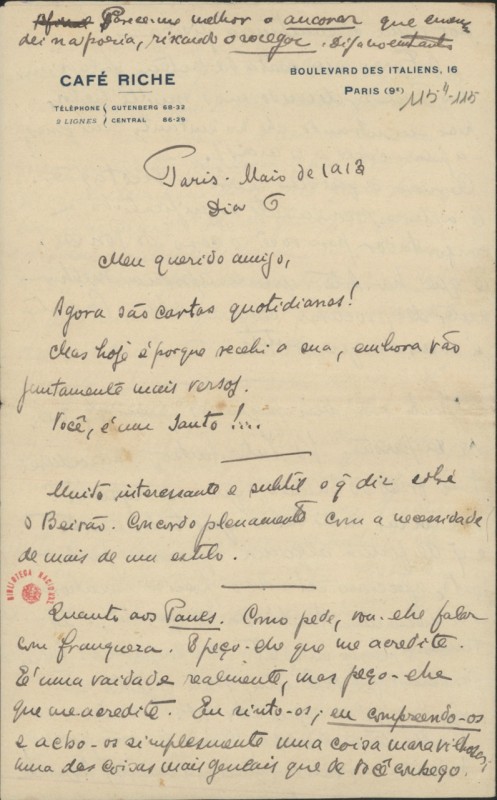 Parece-me melhor o ancorar que emen-
dei na poesia, riscando o
CAFÉ RICHE
BOULEVARD DES ITALIENS, 16
PARIS (9e)
115
TÉLÉPHONE GUTENBERG 68-32
2 LIGNES CENTRAL 86-29
Paris - Maio de 1913
Dia 6
Meu querido amigo,
Agora são cartas quotidianas!
Mas hoje é porque recebi a sua, embora vão
juntamente mais versos.
Você, é um Santo!...
Muito interessante e subtil o q diz sobre
o Beirão. Concordo plenamente com a necessidade
de mais de um estilo.
BIBLIOTECA NACIONAL
Quanto aos Paues. Como pede, vou-lhe falar
com franqueza. E peço-lhe que me acredite.
É uma vaidade realmente, mas peço-lhe
que me acredite. Eu sinto-os; eu compreendo-os
e acho-os simplesmente uma coisa maravilhosa;
uma das coisas mais geniais que de Você conheço.